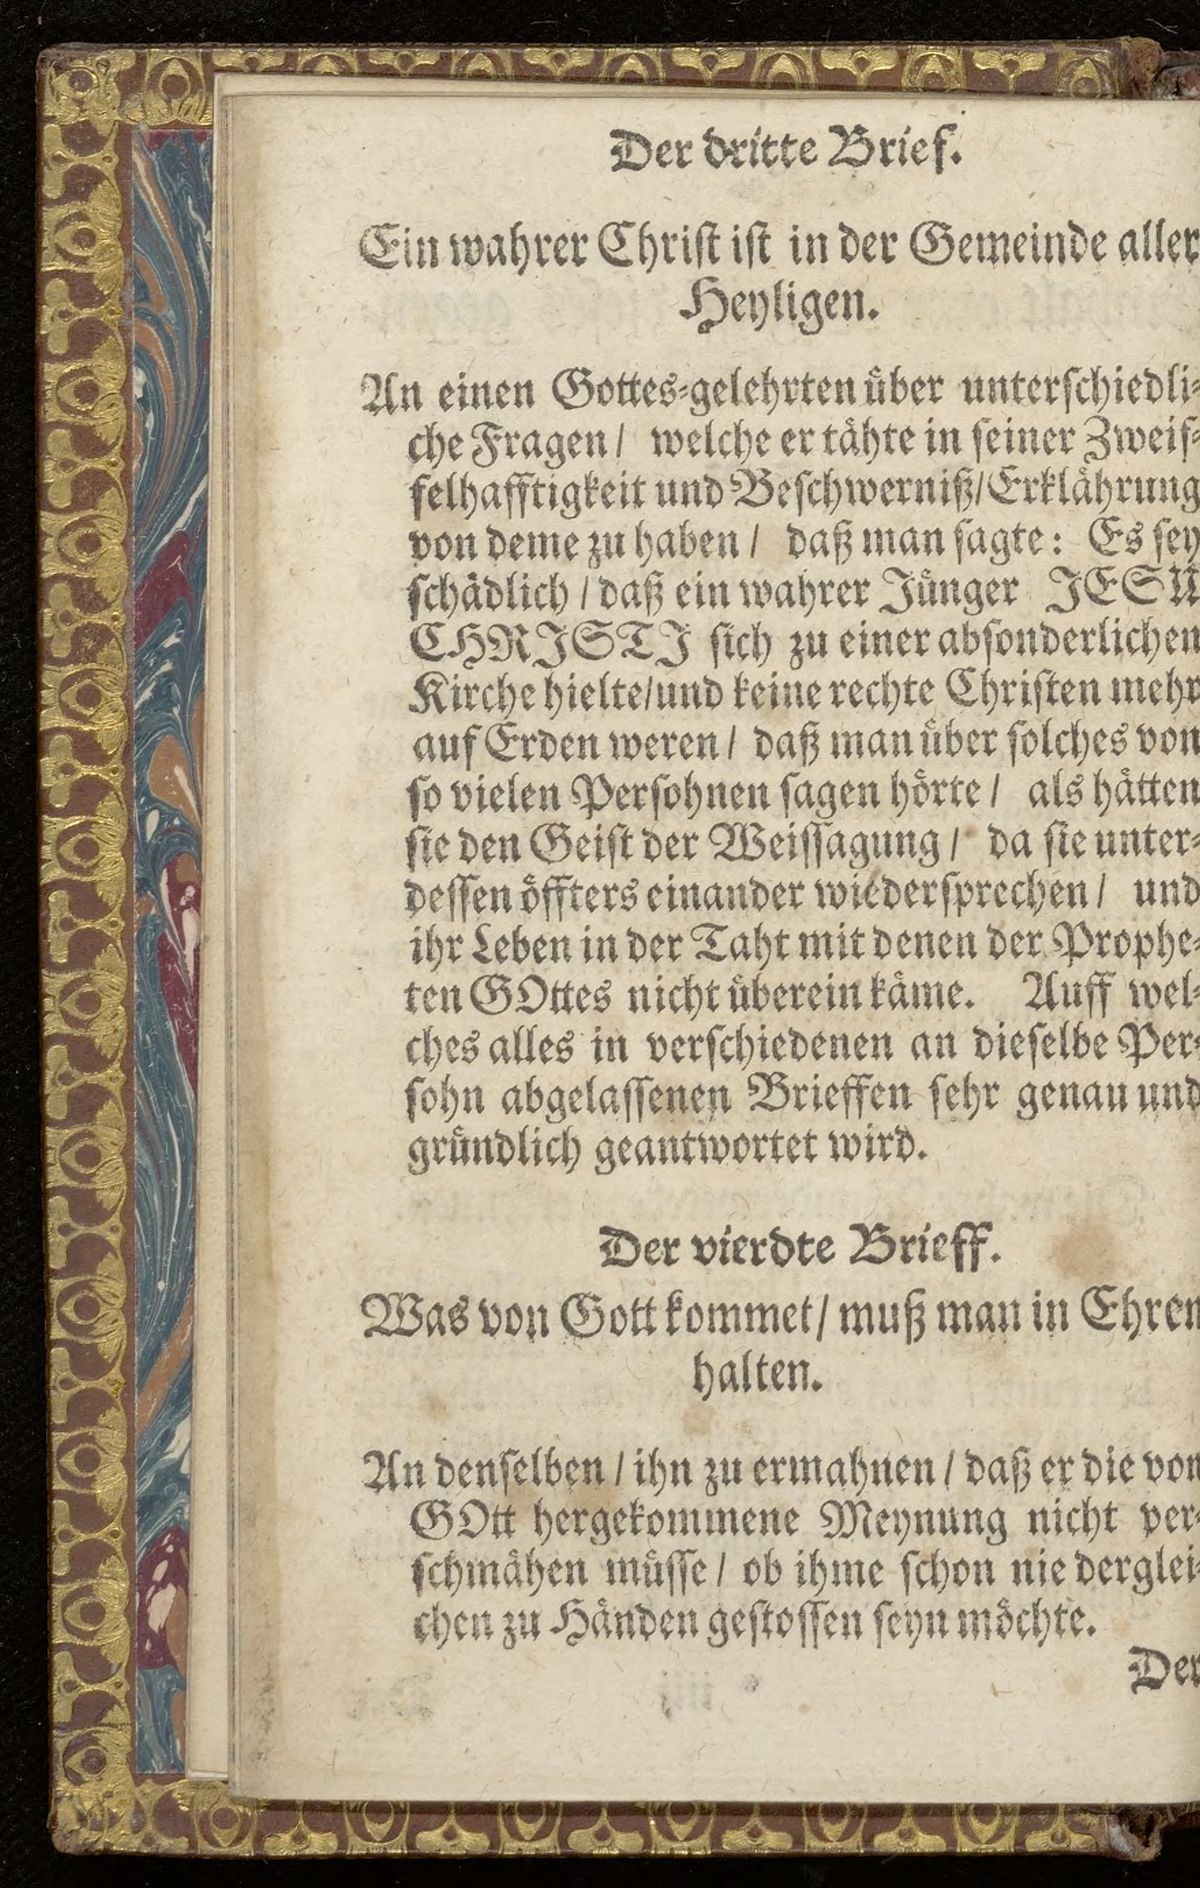 Der dritte Brief.
Ein wahrer Christ ist in der Gemeinde aller
Heyligen.
An einen Gottes-gelehrten über unterschiedli-
che Fragen / welche er tähte in seiner Zweif-
felhafftigkeit und Beschwerniß / Erklährung
von deme zu haben / daß man sagte: Es sey
schädlich / daß ein wahrer Jünger JESU
CHRISTJ sich zu einer absonderlichen
Kirche hielte / und keine rechte Christen mehr
auf Erden weren / daß man über solches von
so vielen Persohnen sagen hörte / als hätten
sie den Geist der Weissagung / da sie unter-
dessen öffters einander wiedersprechen / und
ihr Leben in der Taht mit denen der Prophe-
ten GOttes nicht überein käme. Auff wel-
ches alles in verschiedenen an dieselbe Per-
sohn abgelassenen Brieffen sehr genau und
gründlich geantwortet wird.
Der vierdte Brieff.
Was von Gott kommet / muß man in Ehren
halten.
An denselben / ihn zu ermahnen / daß er die von
GOtt hergekommene Meynung nicht ver-
schmähen müsse / ob ihme schon nie derglei-
chen zu Händen gestossen seyn möchte.
Der